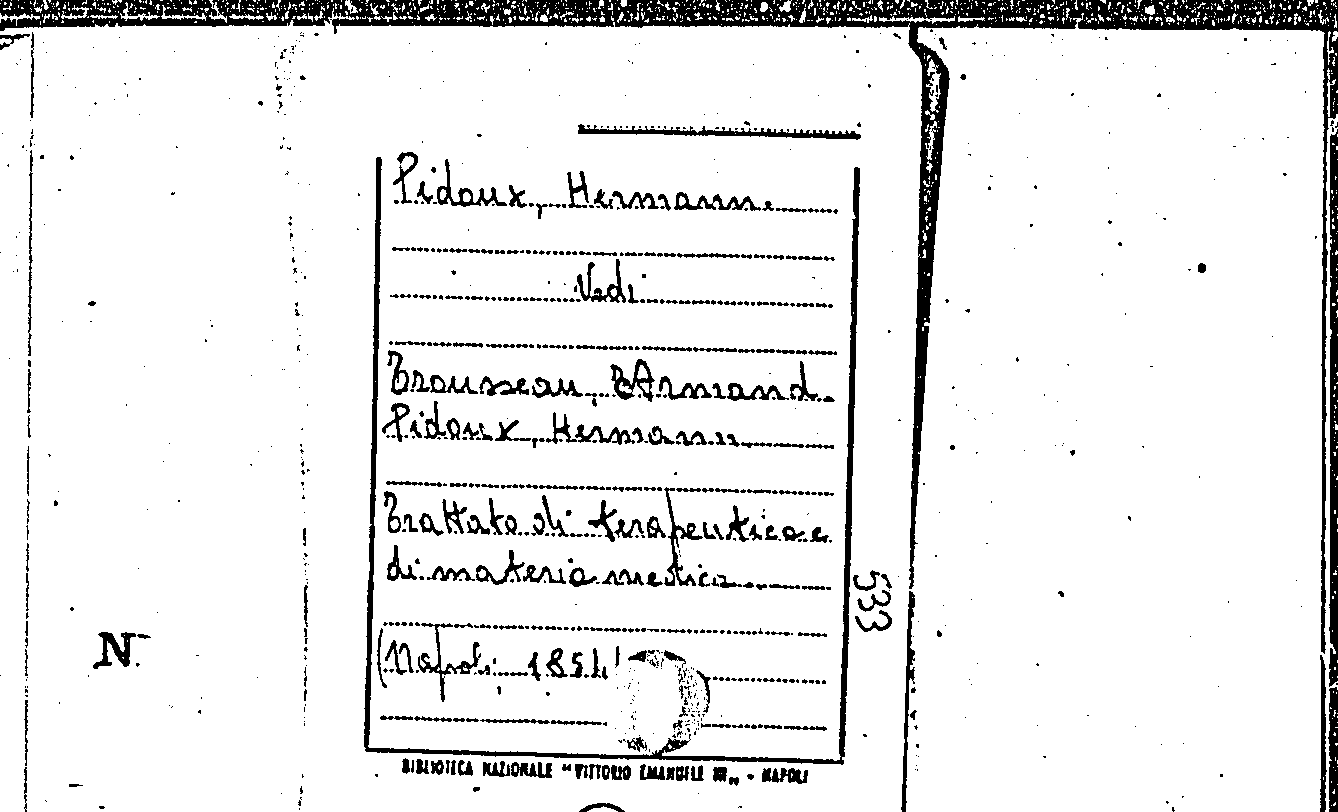 Pidoux, Hermann.
Vedi
Trousseau, Armand.
Pidoux, Hermann.
Trattato di terapeutica e
di materia medica.
(Napoli, 1854)
533
N.
BIBLIOTECA NAZIONALE "VITTORIO EMANUELE III„ - NAPOLI